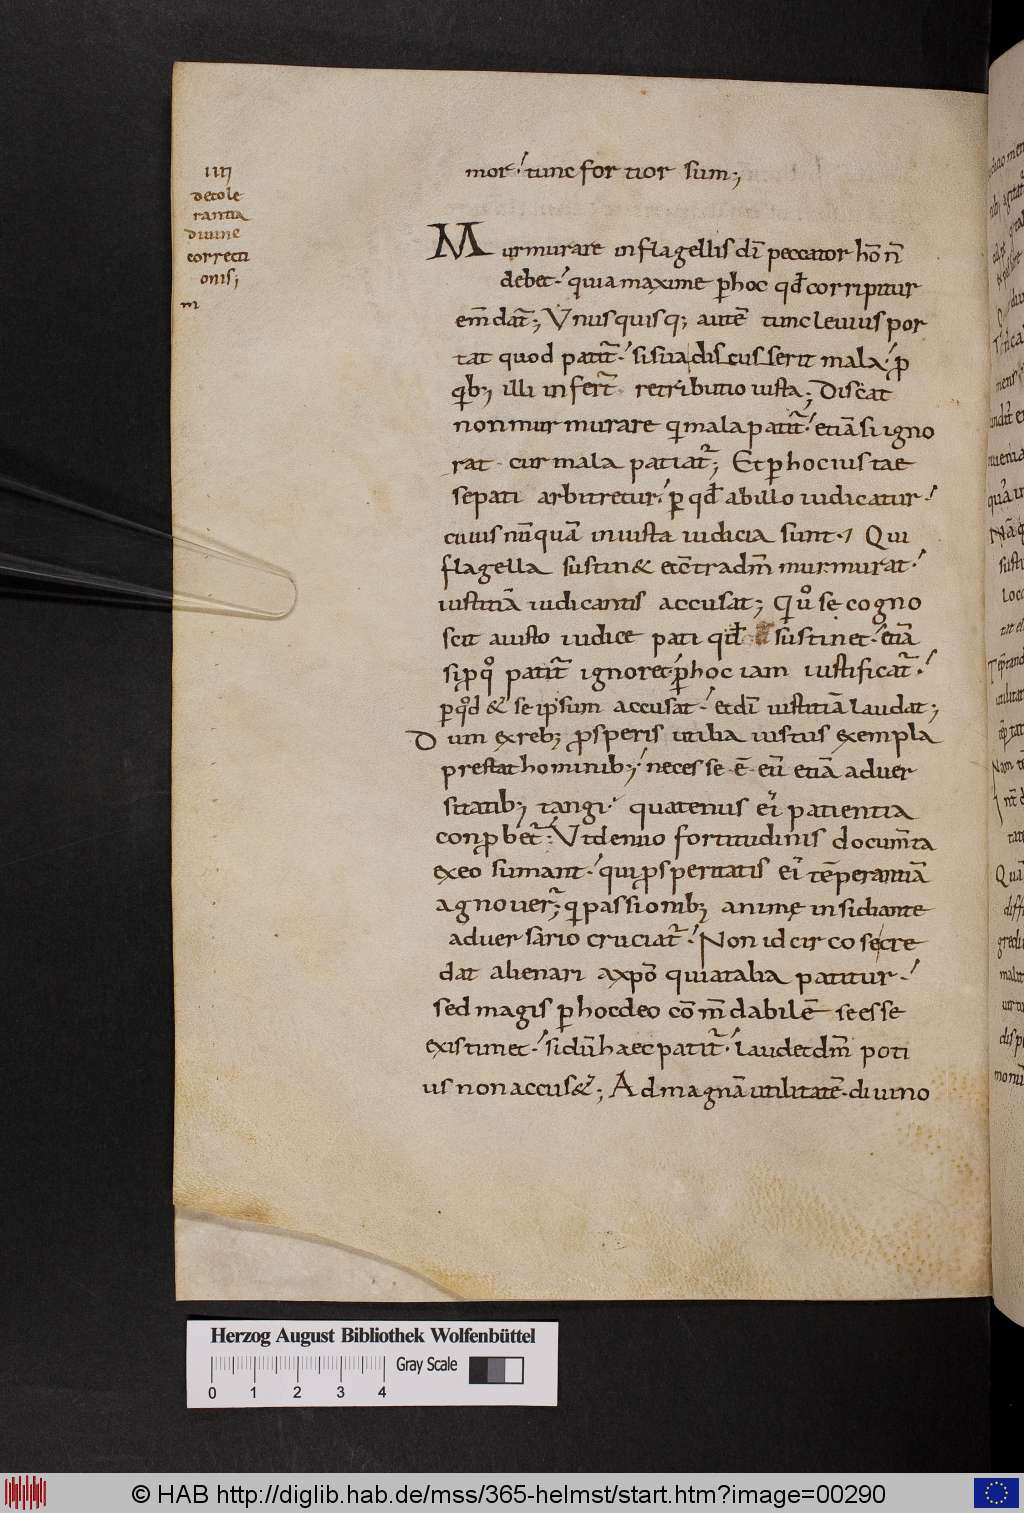 IIII
de tole
rantia
diuine
correcti
onis;
m
mor·́ tunc fortior sum;
Murmurare in flagellis dī peccator hō n̄
debet·́ quia maxime ꝑ hoc qđ corripitur
em̄dat̄; Vnusquisq; autē tunc leuius por
tat quod patit̄·́ si sua discusserit mala·́ ꝓ
qib; illi infert̄ retributio iusta; Discat
non murmurare qi mala patit̄·́ etiā si igno
rat cur mala patiat̄; Et ꝑ hoc iustae
se pati arbitretur·́ ꝑ qđ ab illo iudicatur·́
cuius nūquā iniusta iudicia sunt· Qui
flagella sustin& et cōtra dm̄ murmurat·́
iustitiā iudicantis accusat; Qi uo se cogno
scit a iusto iudice pati qđ sustinet·́ etiā
si ꝓ qo patit̄ ignoret·́ ꝑ hoc iam iustificat̄·́
ꝑ qđ & se ipsum accusat·́ et dī iustitiā laudat;
Dum ex reb; ꝓsperis utilia iustus exempla
prestat hominib;·́ necesse ē eū etiā aduer
sitatib; tangi·́ quatenus ei patientia
conꝓbet̄·́ Vt denuo fortitudinis docum̄ta
ex eo sumant·́ qui ꝓsperitatis ei tēperantiā
agnouer̄; qi passionib; animę insidiante
aduersario cruciat̄·́ Non idcirco se cre
dat alienari a xpō quia talia patitur·́
sed magis ꝑ hoc deo cōm̄dabilē se esse
existimet·́ si dū haec patit̄·́ laudet dm̄ poti
us non accus&; Ad magnā utilitatē diuino
Herzog August Bibliothek Wolfenbüttel
Gray Scale
0 1 2 3 4
© HAB http://diglib.hab.de/mss/365-helmst/start.htm?image=00290